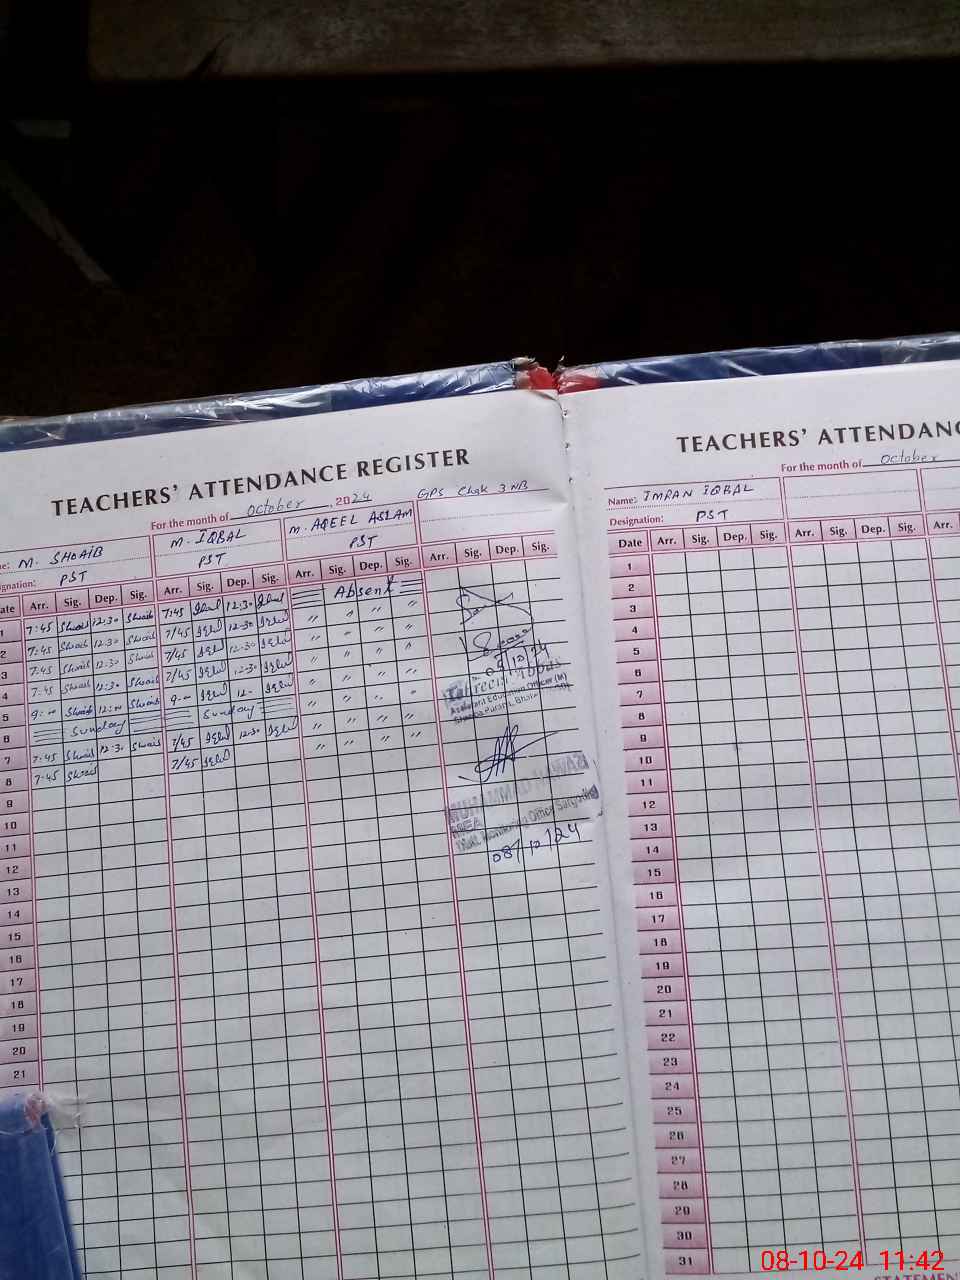 TEACHERS' ATTENDANCE REGISTER
For the month of October, 2024
GPS Chak 3 NB
me: M. SHOAIB M. IQBAL M. AQEEL ASLAM
ignation: PST PST PST
ate Arr. Sig. Dep. Sig. Arr. Sig. Dep. Sig. Arr. Sig. Dep. Sig. Arr. Sig. Dep. Sig.
1 7:45 Shoaib 12:30 Shoaib 7:45 Iqbal 12:30 Iqbal Absent
2 7:45 Shoaib 12:30 Shoaib 7/45 Iqbal 12-30 Iqbal " " " "
3 7:45 Shoaib 12:30 Shoaib 7/45 Iqbal 12-30 Iqbal " " " "
4 7:45 Shoaib 12:30 Shoaib 7/45 Iqbal 12-30 Iqbal " " " "
5 Shoaib Shoaib Iqbal Iqbal " " " "
6 Sunday Sunday " " " "
7 7:45 Shoaib 12:30 Shoaib 7/45 Iqbal 12-30 Iqbal " " " "
8 7:45 Shoaib 7/45 Iqbal " " " "
9
10
11
12
13
14
15
16
17
18
19
20
21
Assistant Education Officer (M)
MUHAMMAD NAWAZ
MEA
Distt. Monitoring Office Sargodha
08/10/24
TEACHERS' ATTENDANC
For the month of October
Name: IMRAN IQBAL
Designation: PST
Date Arr. Sig. Dep. Sig. Arr. Sig. Dep. Sig. Arr.
1
2
3
4
5
6
7
8
9
10
11
12
13
14
15
16
17
18
19
20
21
22
23
24
25
26
27
28
29
30
31
STATEMEN
08-10-24 11:42